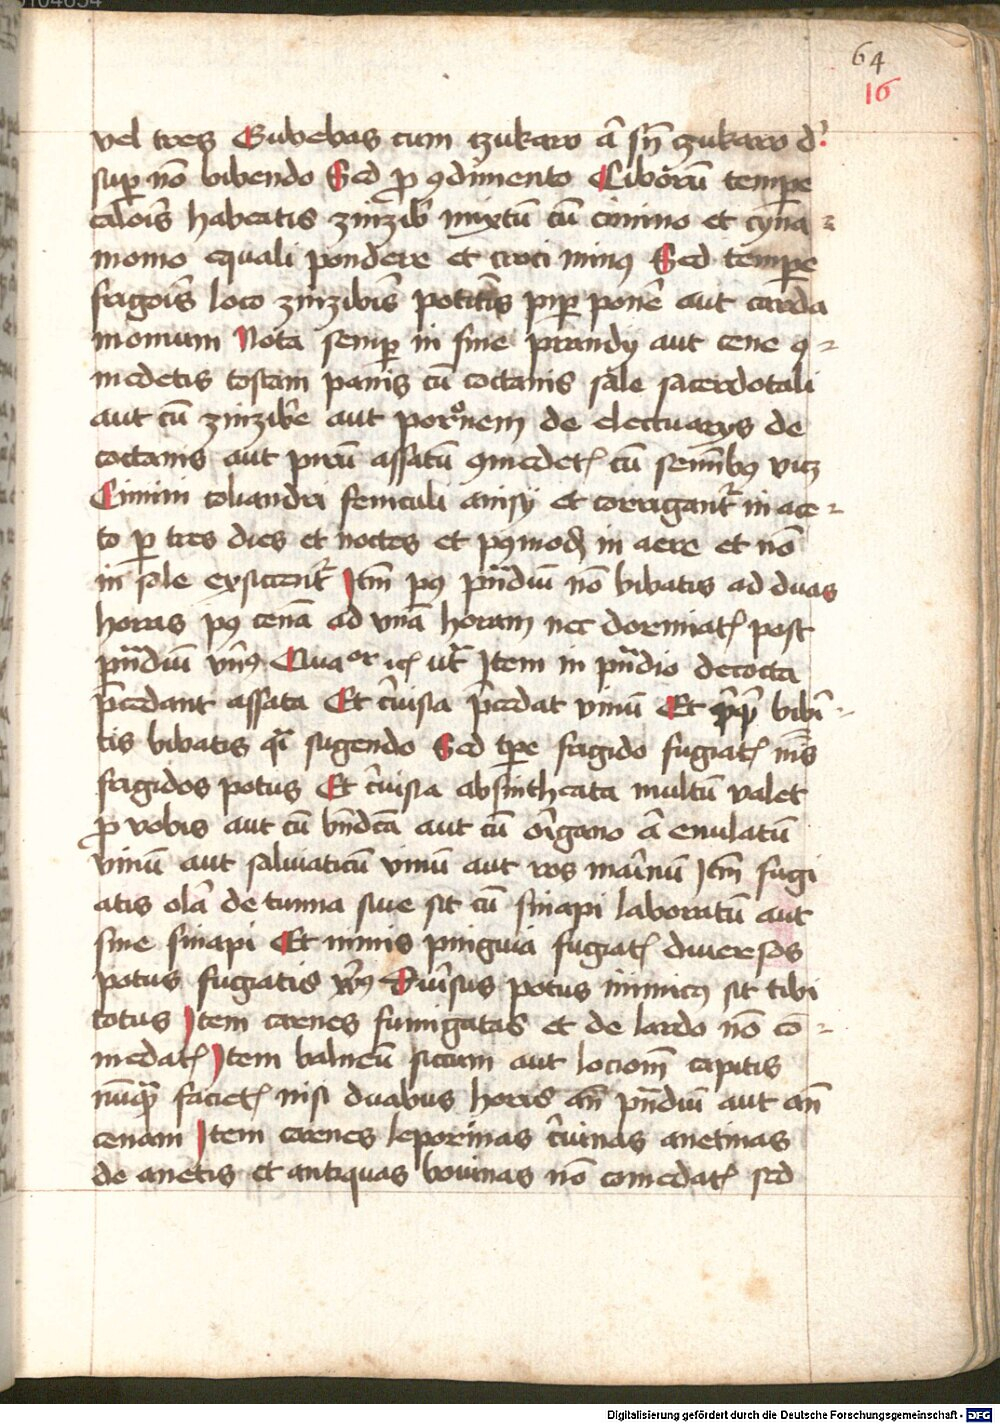 64
16
vel tres Cubebas cum zukaro a͞ sn͞ zukaro d:
sup no͞ bibendo Sed p 9dimento Ciboru͞ tempe
caloris habeatis zinziber mixtu͞ cu͞ cimino et cyna=
momo equali pondere et croci min9 Sed tempe
frigoris loco zinziberis potitis pip pone͞ aut carda
momum Nota semp in fine prandy aut cene 9=
medetis tostam panis cu͞ coctanis sale sacerdotali
aut cu͞ zinzibere aut portionem de electuarys de
coctanis aut piru͞ assatu͞ 9medet cu͞ semi͞b9 vicz
Cimini coliandri feniculi anisy et corrigant in ace=
to p tres dies et noctes et p9modu in aere et no͞
in sole exsiccent Itm p9 pn͞diu͞ no͞ bibatis ad duas
horas p9 cena͞ ad vna͞ horam nec dormiat post
pn͞diu͞ vn͞9 Qua or ic͞ ut Item in pn͞dio decocta
p͞cedant assata Et c͞uisia p͞cedat vinu͞ Et bibi͞=
tis bibatis q͞i sugendo Sed tpe frigido fugiat nis
frigidos potus Et c͞uisia absintheata multu͞ valet
p vobis aut cu͞ bn͞dca͞ aut cu͞ origano a͞ enulatu͞
vinu͞ aut saluiaticu͞ vinu͞ aut ros marinu͞ Itm fugi
atis ola͞ de tunna siue sit cu͞ sinapi laboratu͞ aut
sine sinapi Et nimis pinguia fugiat diuersos
potus fugiatis vn͞9 Diu͞sus potus inimic9 sit tibi
totus Item carnes fumigatas et de lardo no͞ co=
medat Item balneu͞ siccum aut locionem capitis
nu͞q͞ faciet nisi duabus horis an͞ pn͞diu͞ aut an͞
cenam Item carnes leporinas c͞uinas anetinas
de anetis et antiquas bouinas no͞ comedat sed
Digitalisierung gefördert durch die Deutsche Forschungsgemeinschaft - DFG